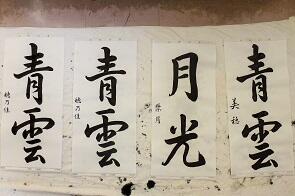 青雲
美穂
月光
青雲
穂乃佳
青雲
穂乃佳